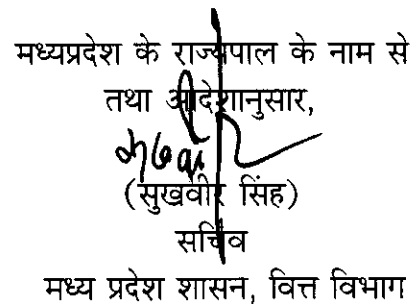 मध्यप्रदेश के राज्यपाल के नाम से
तथा आदेशानुसार,
(सुखवीर सिंह)
सचिव
मध्य प्रदेश शासन, वित्त विभाग